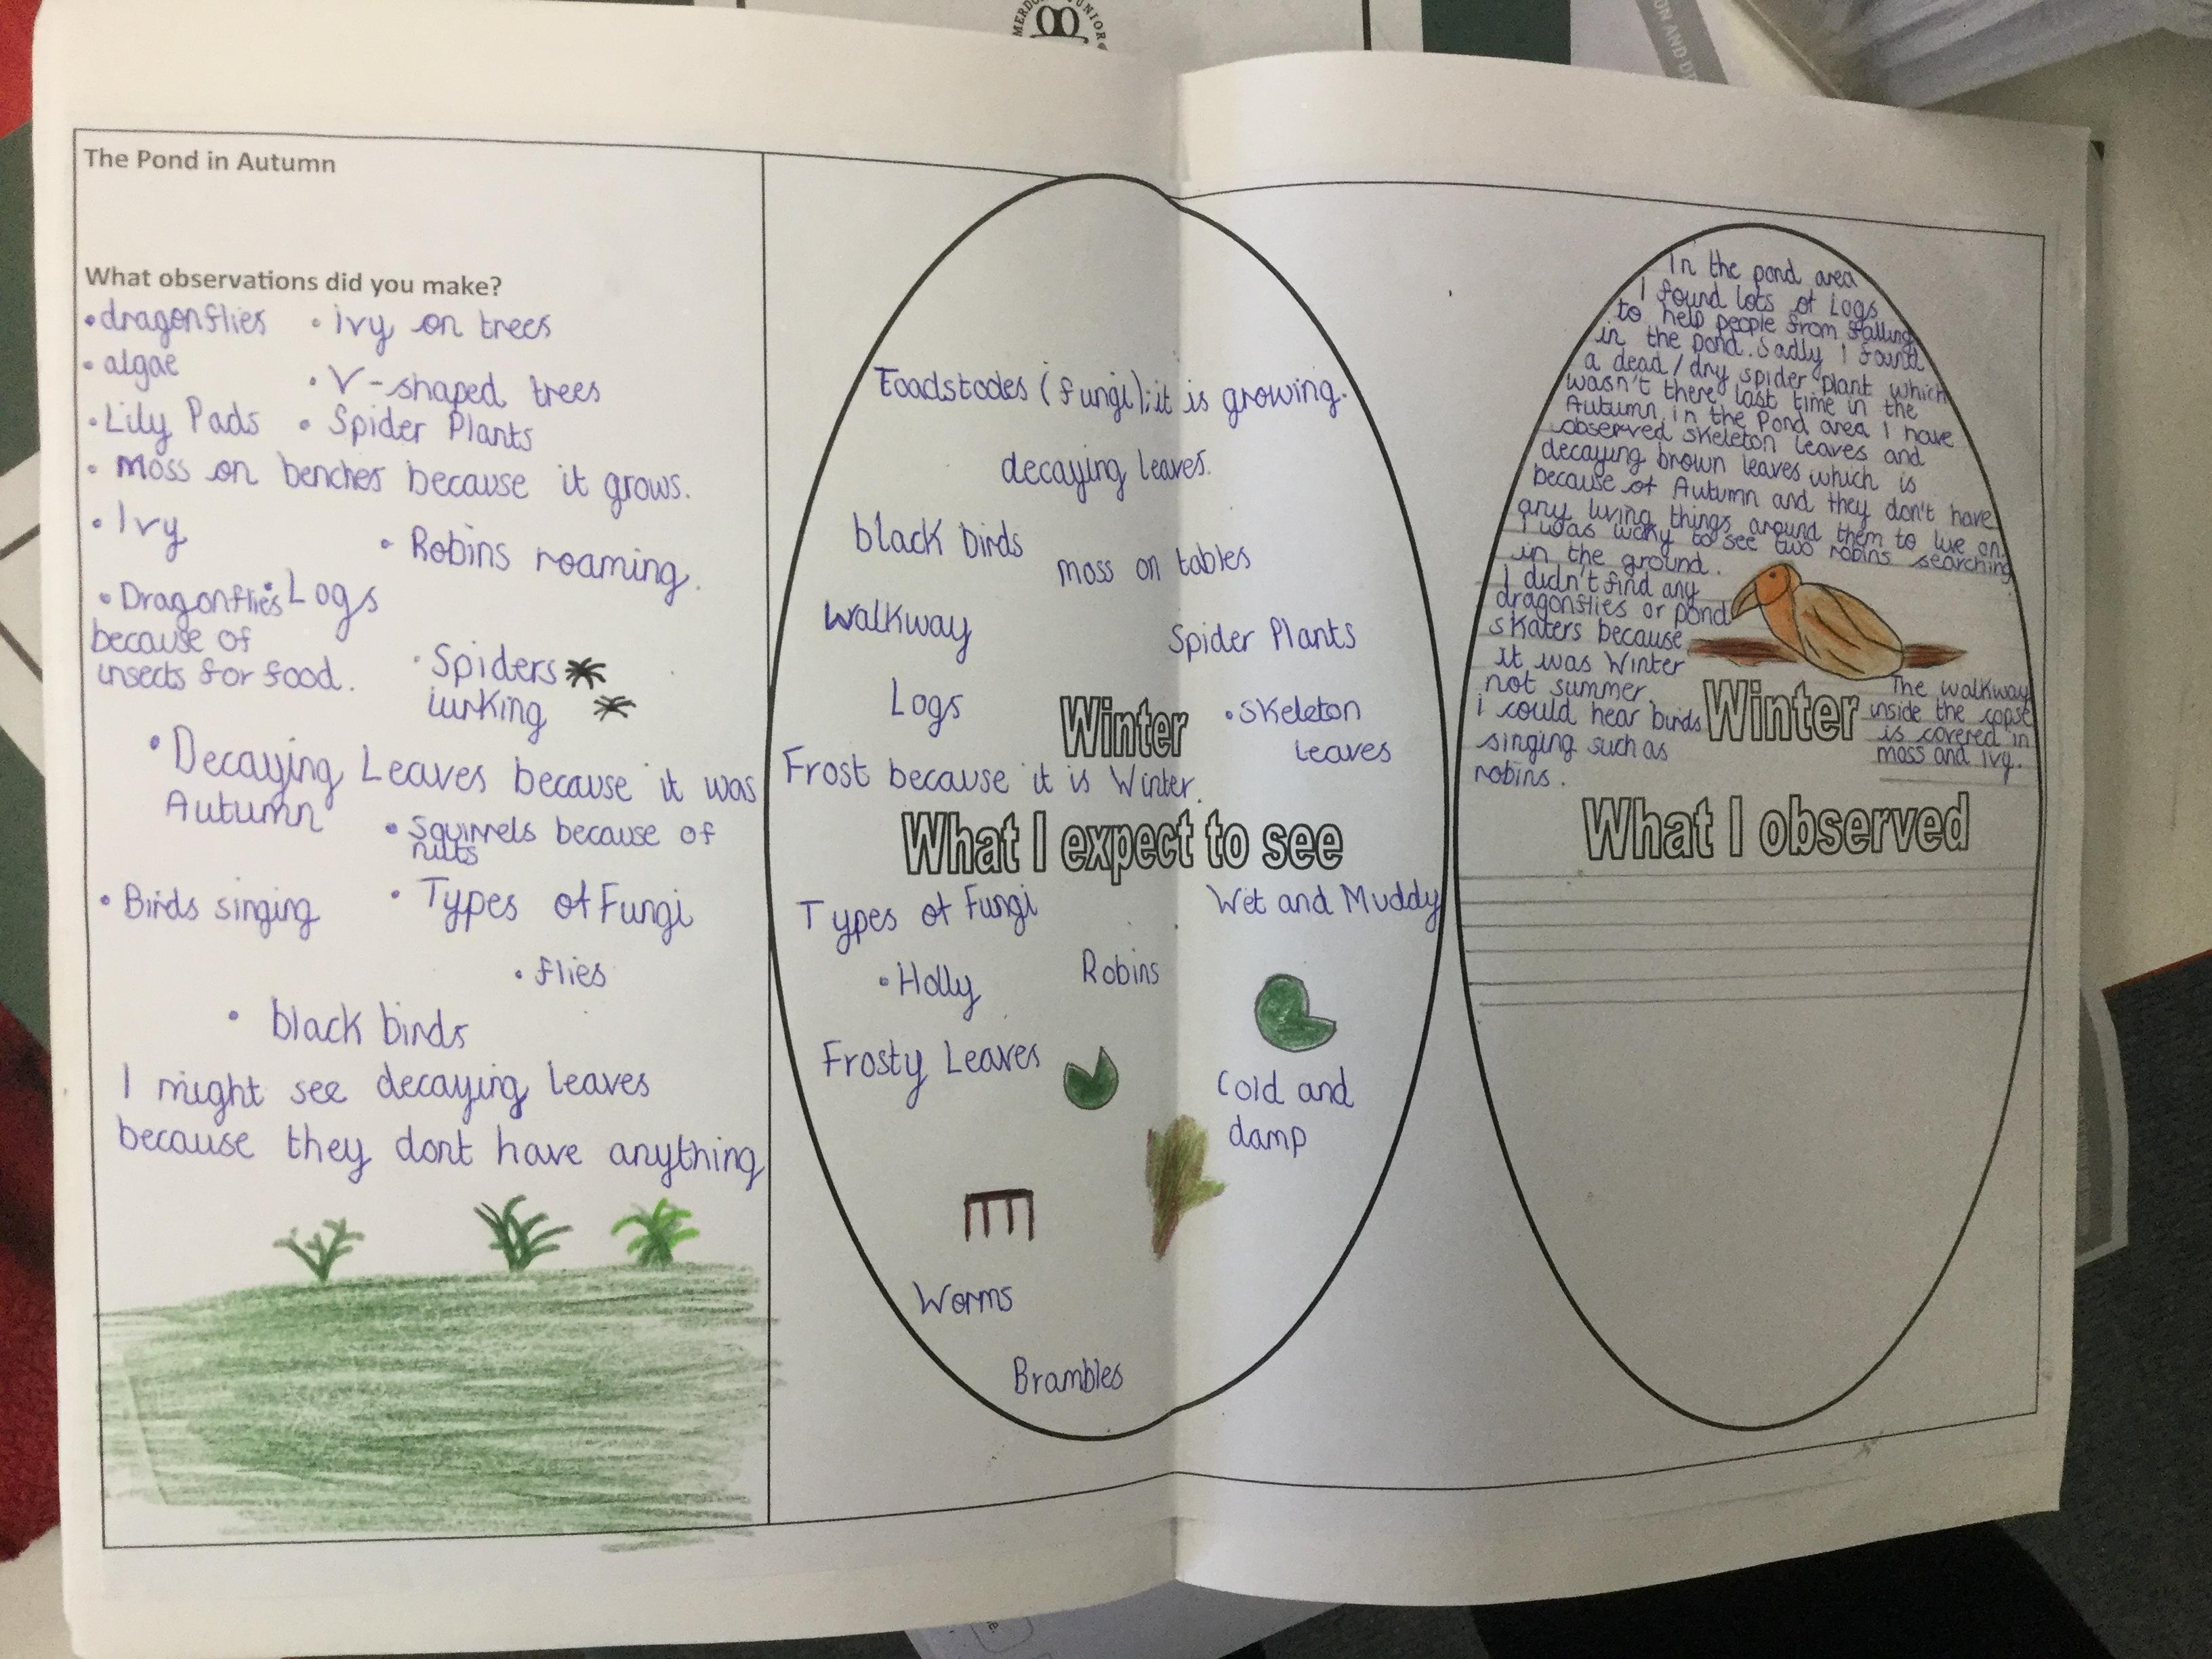 MERDO JUNIOR
ON AND DI
The Pond in Autumn
What observations did you make?
• dragonflies • ivy on trees
• algae
• V-shaped trees
• Lily Pads • Spider Plants
• moss on benches because it grows.
• Ivy
• Robins roaming.
• Dragonflies • Logs
because of
insects for food.
• Spiders
lurking
• Decaying Leaves because it was
Autumn
• Squirrels because of
nuts
• Birds singing • Types of Fungi
• flies
• black birds
I might see decaying leaves
because they dont have anything
Toadstodes (fungi); it is growing.
decaying leaves.
black birds
moss on tables
Walkway
Spider Plants
Logs
Winter
• Skeleton
Leaves
Frost because it is Winter.
What I expect to see
Types of Fungi
Wet and Muddy
• Holly
Robins
Frosty Leaves
Cold and
damp
Worms
Brambles
In the pond area
I found lots of Logs
to help people from falling
in the pond. Sadly I found
a dead / dry spider plant which
wasn't there last time in the
Autumn. in the Pond area I have
observed skeleton leaves and
decaying brown leaves which is
because of Autumn and they don't have
any living things around them to live on.
I was lucky to see two robins searching
in the ground.
I didn't find any
dragonflies or pond
skaters because
it was Winter
not summer.
i could hear birds
singing such as
robins.
Winter
The walkway
inside the copse
is covered in
moss and ivy.
What I observed